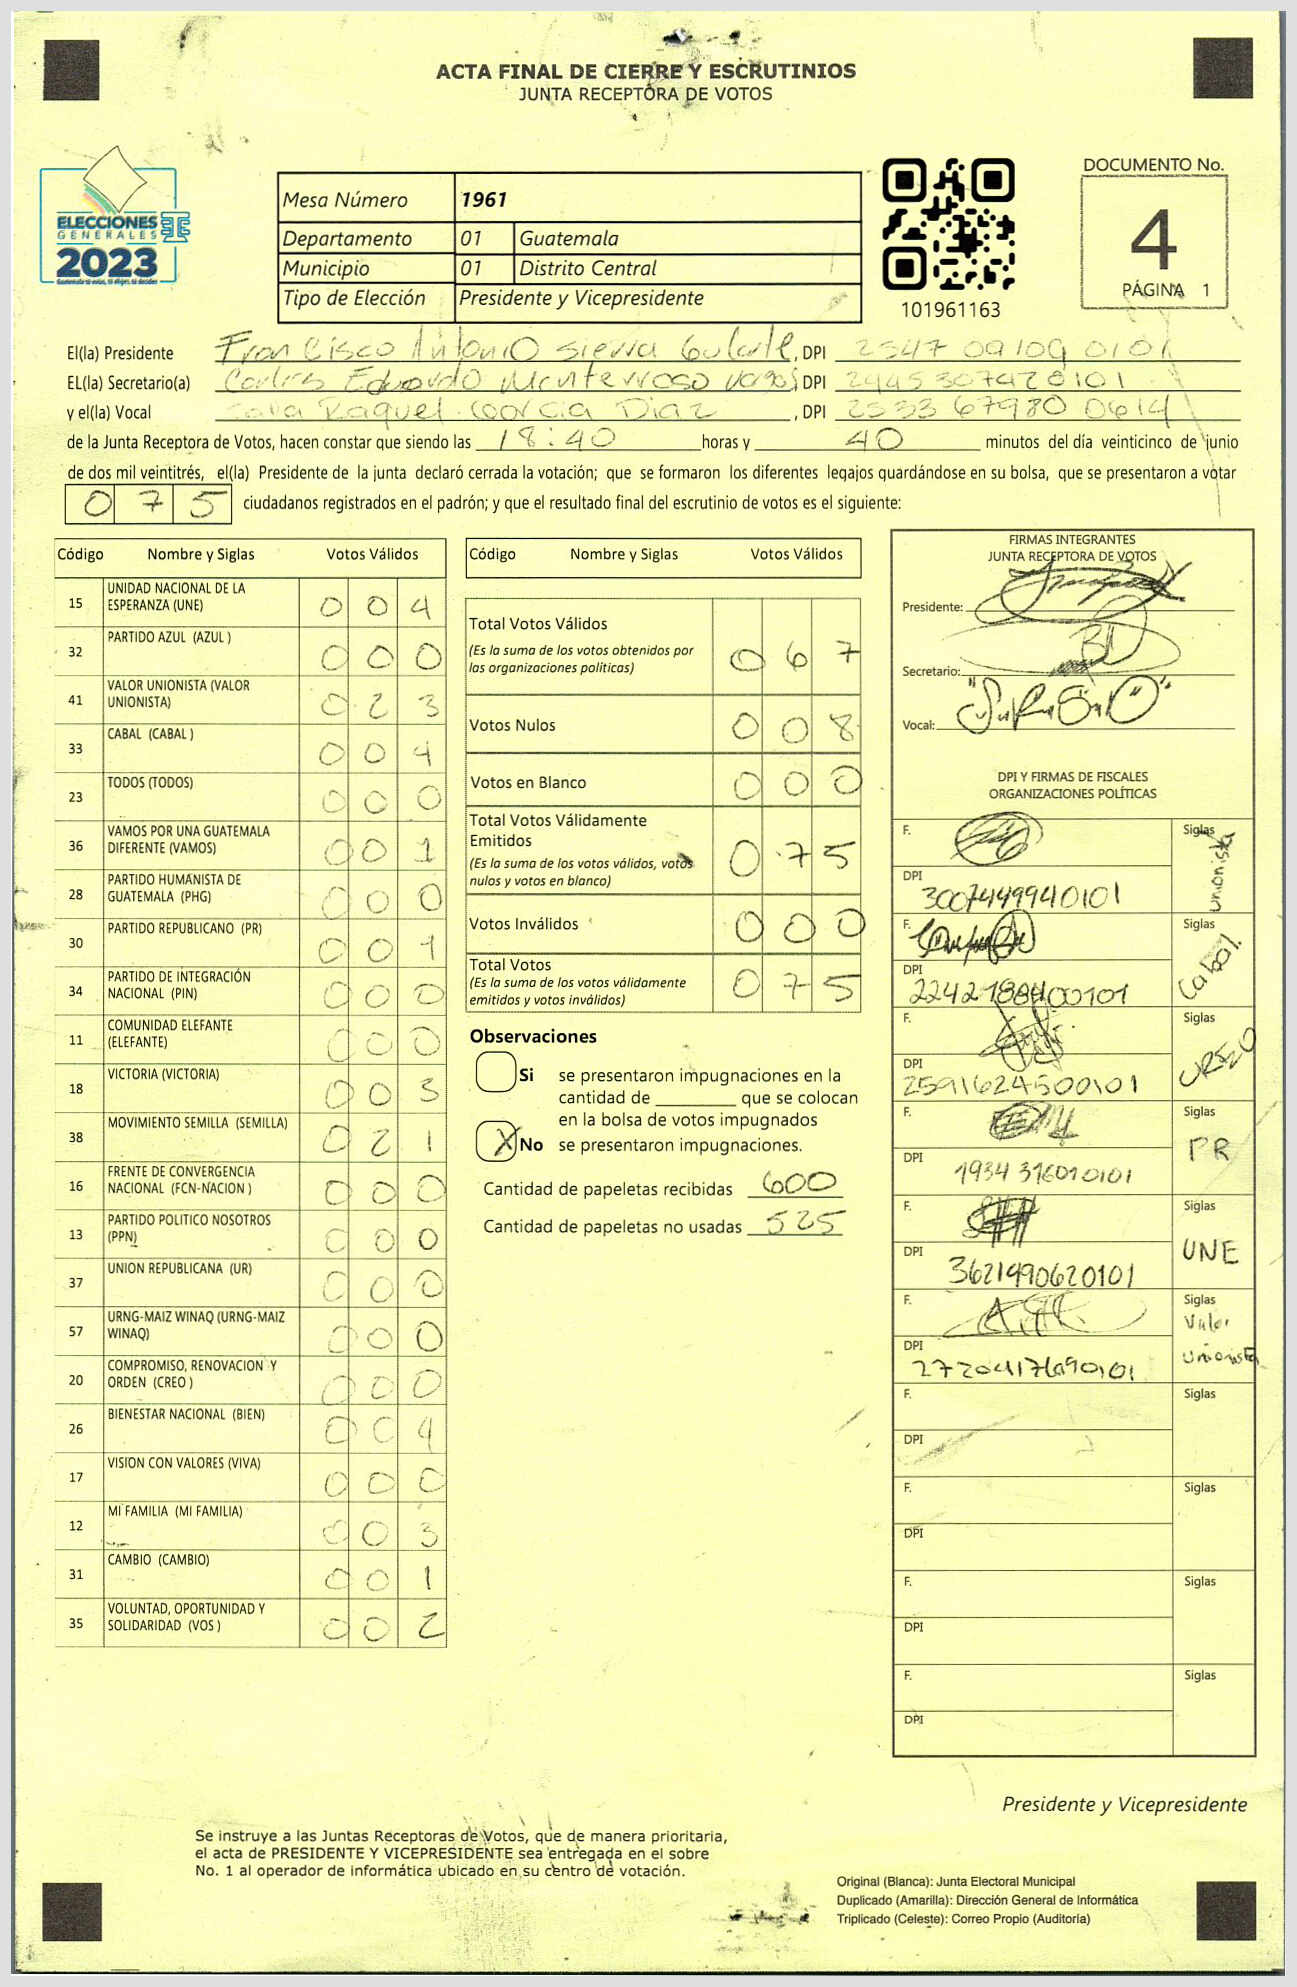 ACTA FINAL DE CIERRE Y ESCRUTINIOS
JUNTA RECEPTORA DE VOTOS
ELECCIONES
GENERALES
2023
Guatemala tú votas, tú eliges, tú decides
Mesa Número 1961
Departamento 01 Guatemala
Municipio 01 Distrito Central
Tipo de Elección Presidente y Vicepresidente
101961163
DOCUMENTO No.
4
PÁGINA 1
El(la) Presidente Francisco Antonio Sierra , DPI 2547 09109 0101
EL(la) Secretario(a) Carlos Eduardo Monterroso , DPI 2445307420101
y el(la) Vocal Raquel Garcia Diaz , DPI 2533 67980 0614
de la Junta Receptora de Votos, hacen constar que siendo las 18:40 horas y 40 minutos del día veinticinco de junio
de dos mil veintitrés, el(la) Presidente de la junta declaró cerrada la votación; que se formaron los diferentes legajos quardándose en su bolsa, que se presentaron a votar
0 7 5 ciudadanos registrados en el padrón; y que el resultado final del escrutinio de votos es el siguiente:
Código Nombre y Siglas Votos Válidos
15 UNIDAD NACIONAL DE LA ESPERANZA (UNE) 0 0 4
32 PARTIDO AZUL (AZUL ) 0 0 0
41 VALOR UNIONISTA (VALOR UNIONISTA) 0 2 3
33 CABAL (CABAL ) 0 0 4
23 TODOS (TODOS) 0 0 0
36 VAMOS POR UNA GUATEMALA DIFERENTE (VAMOS) 0 0 1
28 PARTIDO HUMANISTA DE GUATEMALA (PHG) 0 0 0
30 PARTIDO REPUBLICANO (PR) 0 0 1
34 PARTIDO DE INTEGRACIÓN NACIONAL (PIN) 0 0 0
11 COMUNIDAD ELEFANTE (ELEFANTE) 0 0 0
18 VICTORIA (VICTORIA) 0 0 3
38 MOVIMIENTO SEMILLA (SEMILLA) 0 2 1
16 FRENTE DE CONVERGENCIA NACIONAL (FCN-NACION ) 0 0 0
13 PARTIDO POLITICO NOSOTROS (PPN) 0 0 0
37 UNION REPUBLICANA (UR) 0 0 0
57 URNG-MAIZ WINAQ (URNG-MAIZ WINAQ) 0 0 0
20 COMPROMISO, RENOVACION Y ORDEN (CREO ) 0 0 0
26 BIENESTAR NACIONAL (BIEN) 0 0 4
17 VISION CON VALORES (VIVA) 0 0 0
12 MI FAMILIA (MI FAMILIA) 0 0 3
31 CAMBIO (CAMBIO) 0 0 1
35 VOLUNTAD, OPORTUNIDAD Y SOLIDARIDAD (VOS ) 0 0 2
Código Nombre y Siglas Votos Válidos
Total Votos Válidos 0 6 7
(Es la suma de los votos obtenidos por
las organizaciones políticas)
Votos Nulos 0 0 8
Votos en Blanco 0 0 0
Total Votos Válidamente
Emitidos 0 7 5
(Es la suma de los votos válidos, votos
nulos y votos en blanco)
Votos Inválidos 0 0 0
Total Votos 0 7 5
(Es la suma de los votos válidamente
emitidos y votos inválidos)
Observaciones
Si se presentaron impugnaciones en la
cantidad de ________ que se colocan
en la bolsa de votos impugnados
X No se presentaron impugnaciones.
Cantidad de papeletas recibidas 600
Cantidad de papeletas no usadas 525
FIRMAS INTEGRANTES
JUNTA RECEPTORA DE VOTOS
Presidente:
Secretario:
Vocal:
DPI Y FIRMAS DE FISCALES
ORGANIZACIONES POLÍTICAS
F. Siglas unionista
DPI 3007449940101
F. Siglas Cabal
DPI
F. Siglas
DPI 2591624500101
F. Siglas PR
DPI 1934 316010101
F. Siglas UNE
DPI 3621490620101
F. Siglas Valor
Unionista
DPI 2720417690101
F. Siglas
DPI
F. Siglas
DPI
F. Siglas
DPI
F. Siglas
DPI
Presidente y Vicepresidente
Se instruye a las Juntas Receptoras de Votos, que de manera prioritaria,
el acta de PRESIDENTE Y VICEPRESIDENTE sea entregada en el sobre
No. 1 al operador de informática ubicado en su centro de votación.
Original (Blanca): Junta Electoral Municipal
Duplicado (Amarilla): Dirección General de Informática
Triplicado (Celeste): Correo Propio (Auditoría)